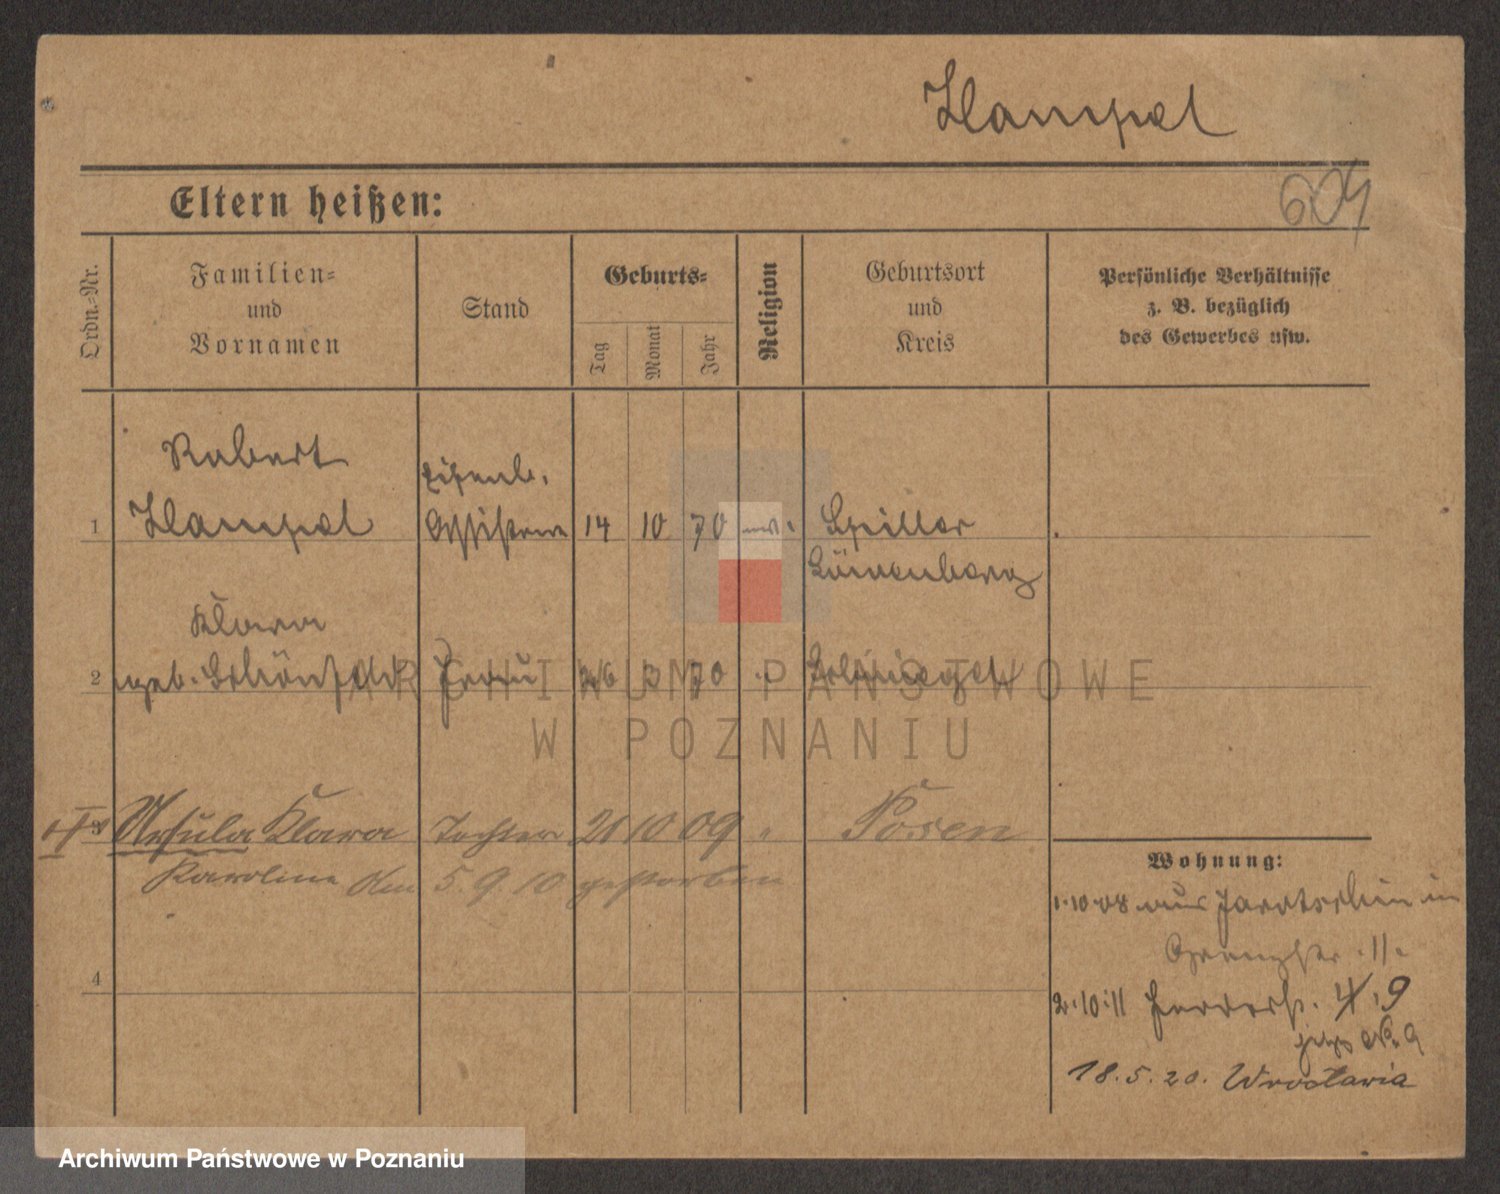 Hampel
604
Eltern heißen:
Ordn.-Nr.
Familien-
und
Vornamen
Stand
Geburts-
Tag
Monat
Jahr
Religion
Geburtsort
und
Kreis
Persönliche Verhältnisse
z. B. bezüglich
des Gewerbes usw.
Robert
Eisenb.
1 Hampel Assistent 14 10 70 ev. Spiller
Löwenberg
Klara
2 geb. Frau 26 70
3 Ursula Klara Tochter 21 10 09 " Posen
Karoline Am 5.9.10 gestorben
4
Wohnung:
1.10.08 aus Jarotschin in
11.
2.10.11 Herderstr. 4.9
jetzt No. 9
18.5.20. Wrocławia
ARCHIWUM PAŃSTWOWE
W POZNANIU
Archiwum Państwowe w Poznaniu